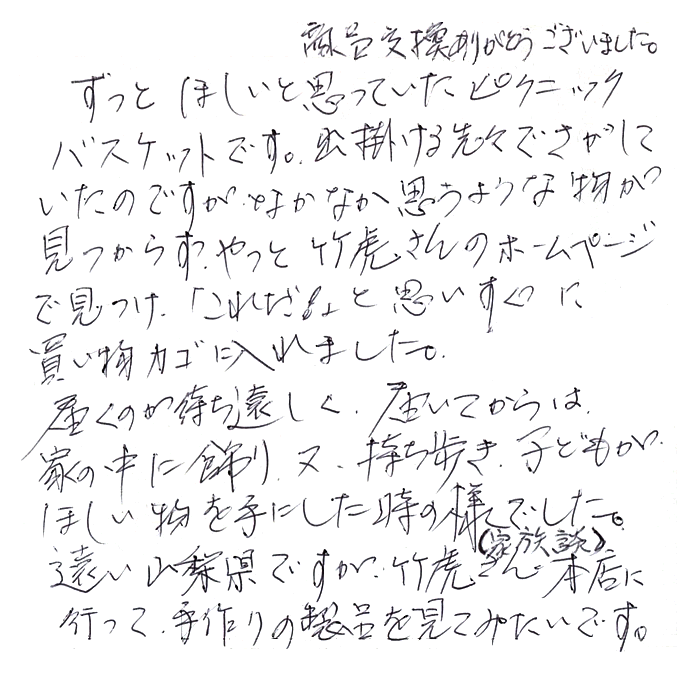 商品交換ありがとうございました。
ずっとほしいと思っていたピクニック
バスケットです。出掛ける先々でさがして
いたのですが、なかなか思うような物が
見つからず、やっと竹虎さんのホームページ
で見つけ、「これだ!」と思いすぐに
買い物カゴに入れました。
届くのが待ち遠しく、届いてからは、
家の中に飾り、又、持ち歩き、子どもが、
ほしい物を手にした時の様でした。
(家族談)
遠い山梨県ですが、竹虎さん本店に
行って、手作りの製品を見てみたいです。